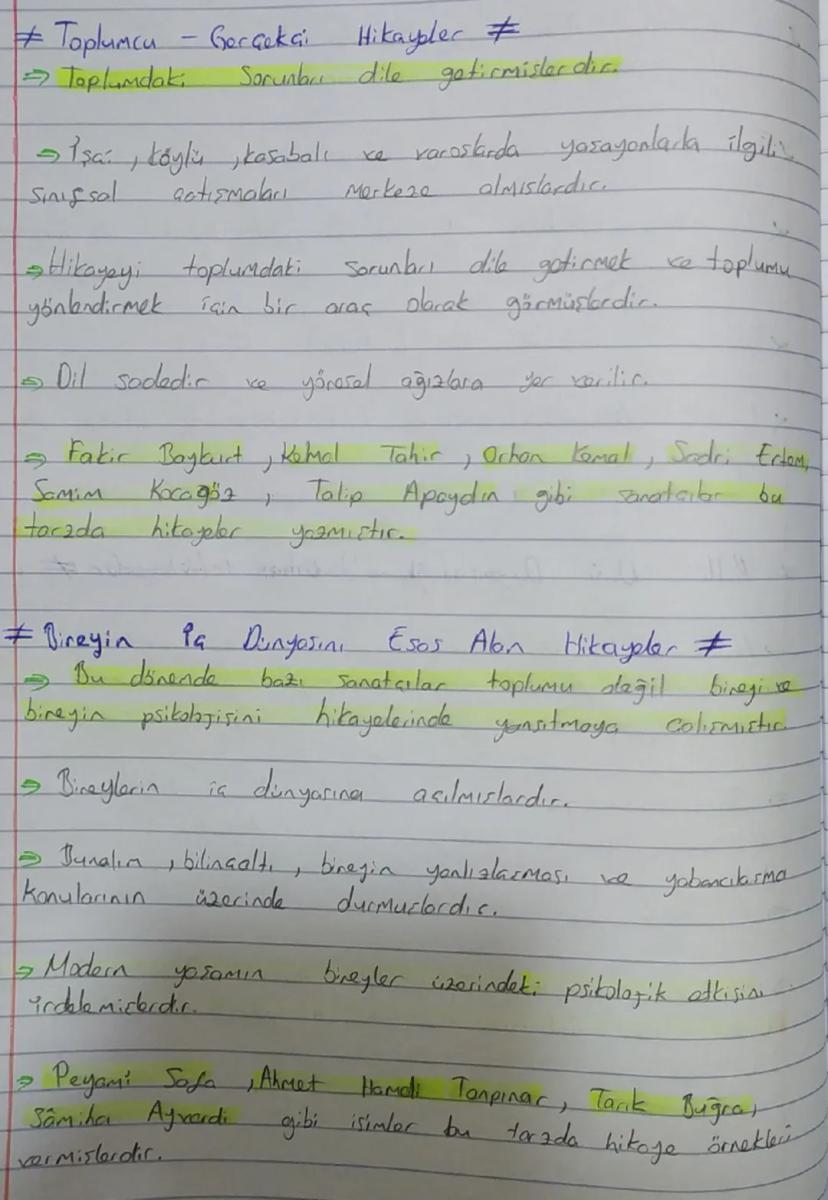 ≠ Toplumcu - Gerçekçi Hikayeler ≠
⇒ Toplumdaki sorunları dile getirmişlerdir.
⇒ İşçi, köylü, kasabalı ve varoşlarda yaşayanlarla ilgili
sınıfsal çatışmaları merkeze almışlardır.
⇒ Hikayeyi toplumdaki sorunları dile getirmek ve toplumu
yönlendirmek için bir araç olarak görmüşlerdir.
⇒ Dil sadedir ve yöresel ağızlara yer verilir.
⇒ Fakir Baykurt, Kemal Tahir, Orhan Kemal, Sadri Ertem,
Samim Kocagöz, Talip Apaydın gibi sanatçılar bu
tarzda hikayeler yazmıştır.
≠ Bireyin İç Dünyasını Esas Alan Hikayeler ≠
⇒ Bu dönemde bazı sanatçılar toplumu değil bireyi ve
bireyin psikolojisini hikayelerinde yansıtmaya çalışmıştır.
⇒ Bireylerin iç dünyasına açılmışlardır.
⇒ Bunalım, bilinçaltı, bireyin yanlızlaşması ve yabancılaşma
konularının üzerinde durmuşlardır.
⇒ Modern yaşamın bireyler üzerindeki psikolojik etkisini
irdelemişlerdir.
⇒ Peyami Safa, Ahmet Hamdi Tanpınar, Tarık Buğra,
Sâmiha Ayverdi gibi isimler bu tarzda hikaye örnekleri
vermişlerdir.